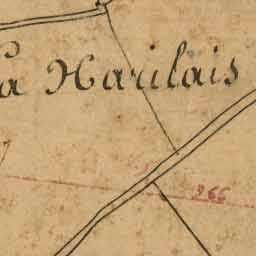 a Harilais
966